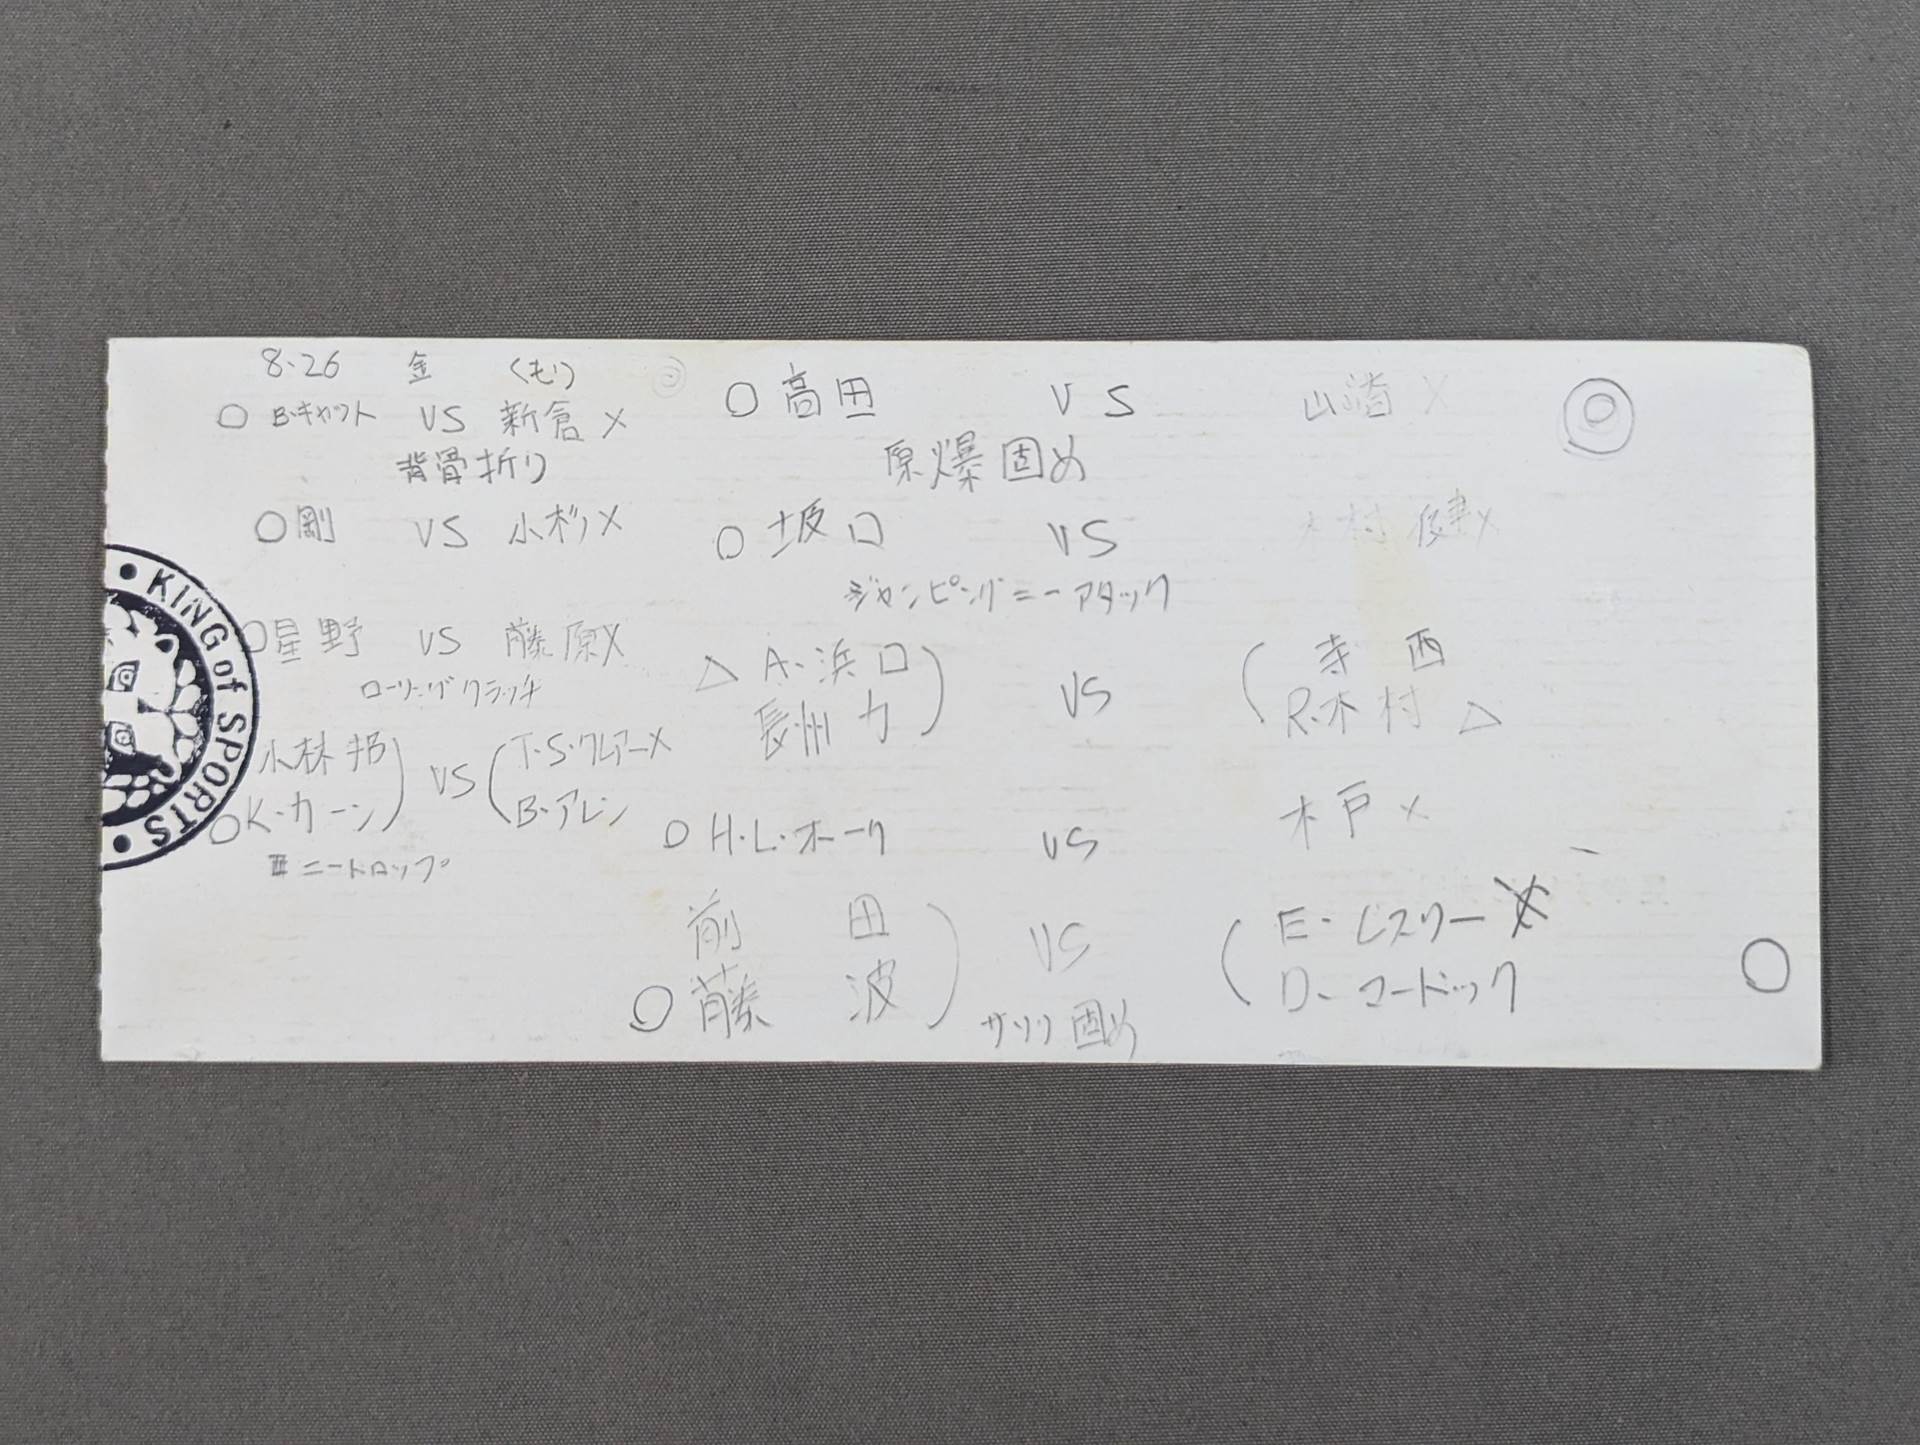 8.26 金 (も)
○ B.キャット VS 新倉 ×
背骨折り
○ 剛 VS 小杉 ×
○ 星野 VS 藤原 ×
ローリングクラッチ
小林邦) VS (T.S.クレアー×
○ K.カーン) (B.アレン
ニードロップ
○ 高田 VS 山崎 ×
原爆固め
○ 坂口 VS 木村健×
ジャンピングニーアタック
△ A.浜口) VS (寺西
長州力) (R.木村 △
○ H.L.ホーク VS 木戸 ×
前田) VS (E.レスリー ×
○ 藤波) (D.マードック
サソリ固め
KING of SPORTS